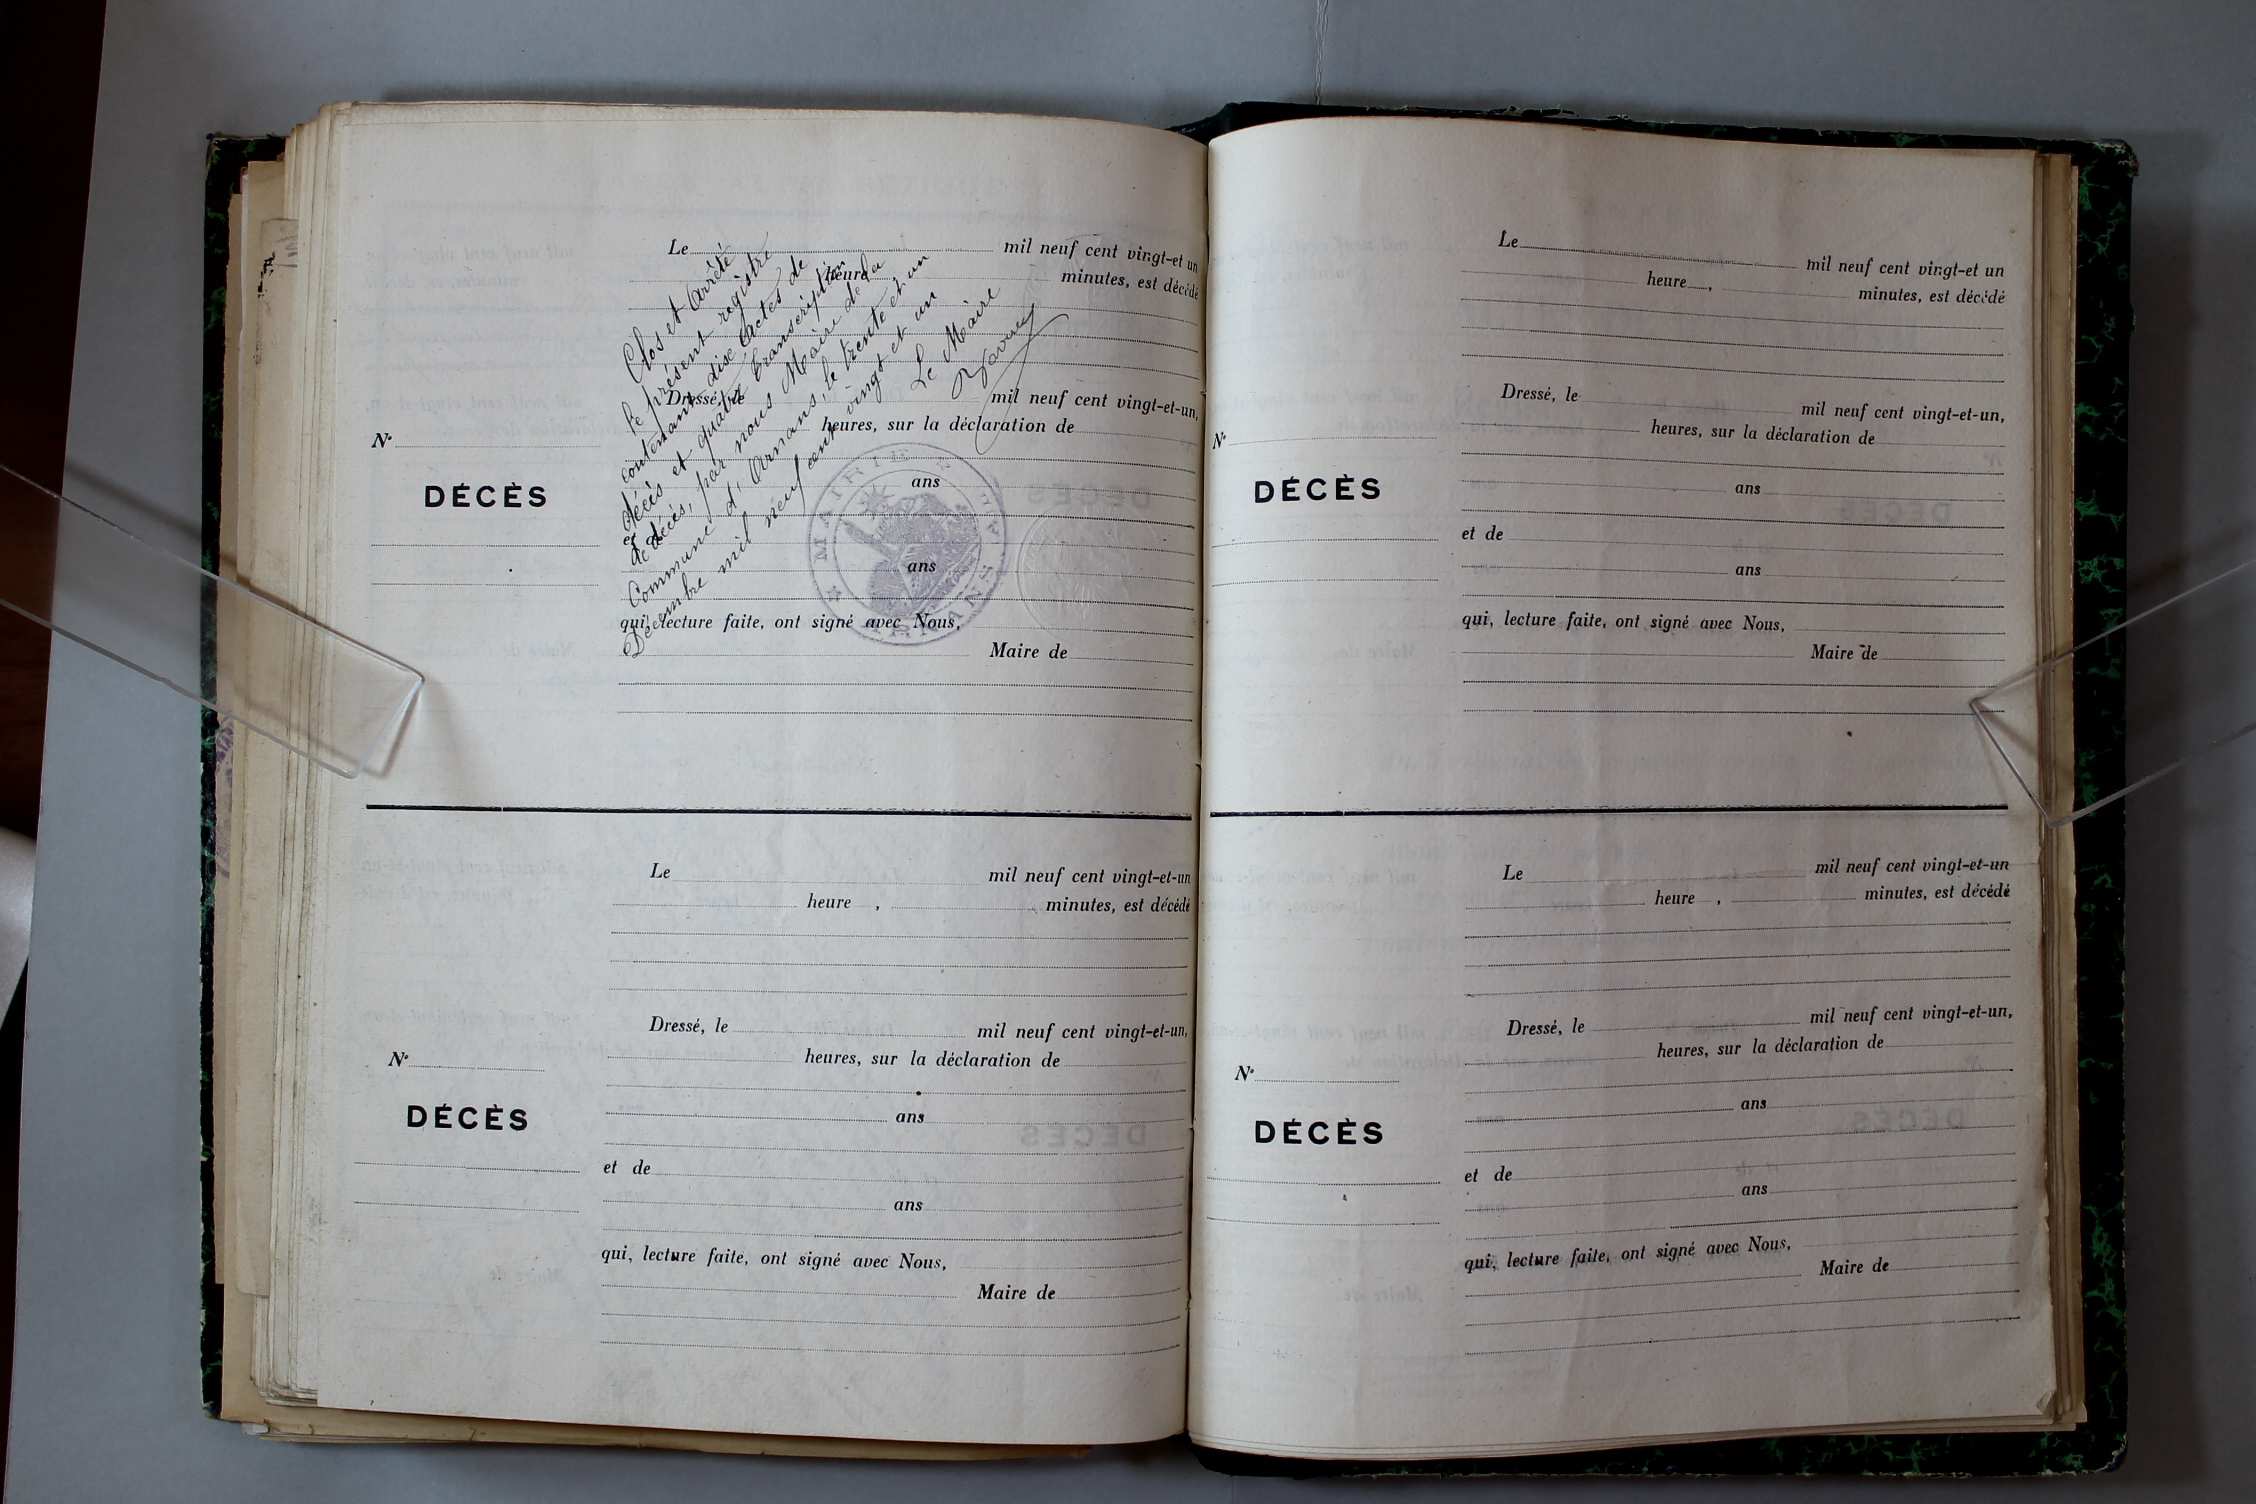 Le mil neuf cent vingt-et un
heure minutes, est décédé
Clos et Arrêté
le présent registre
contenant dix Actes de
décès et quatre transcription
de décès, par nous Maire de la
Commune d'Arnans, le trente et un
Décembre mil neuf cent vingt et un
Le Maire
Dressé, le mil neuf cent vingt-et-un,
heures, sur la déclaration de
N°
DÉCÈS
ans
et de
ans
MAIRIE
ARNANS
qui, lecture faite, ont signé avec Nous,
Maire de
Le mil neuf cent vingt-et-un
heure , minutes, est décédé
Dressé, le mil neuf cent vingt-et-un,
N° heures, sur la déclaration de
DÉCÈS ans
et de
ans
qui, lecture faite, ont signé avec Nous,
Maire de
Le mil neuf cent vingt-et un
heure , minutes, est décédé
Dressé, le mil neuf cent vingt-et-un,
N° heures, sur la déclaration de
DÉCÈS ans
et de
ans
qui, lecture faite, ont signé avec Nous,
Maire de
Le mil neuf cent vingt-et-un
heure , minutes, est décédé
Dressé, le mil neuf cent vingt-et-un,
N° heures, sur la déclaration de
DÉCÈS ans
et de
ans
qui, lecture faite, ont signé avec Nous,
Maire de